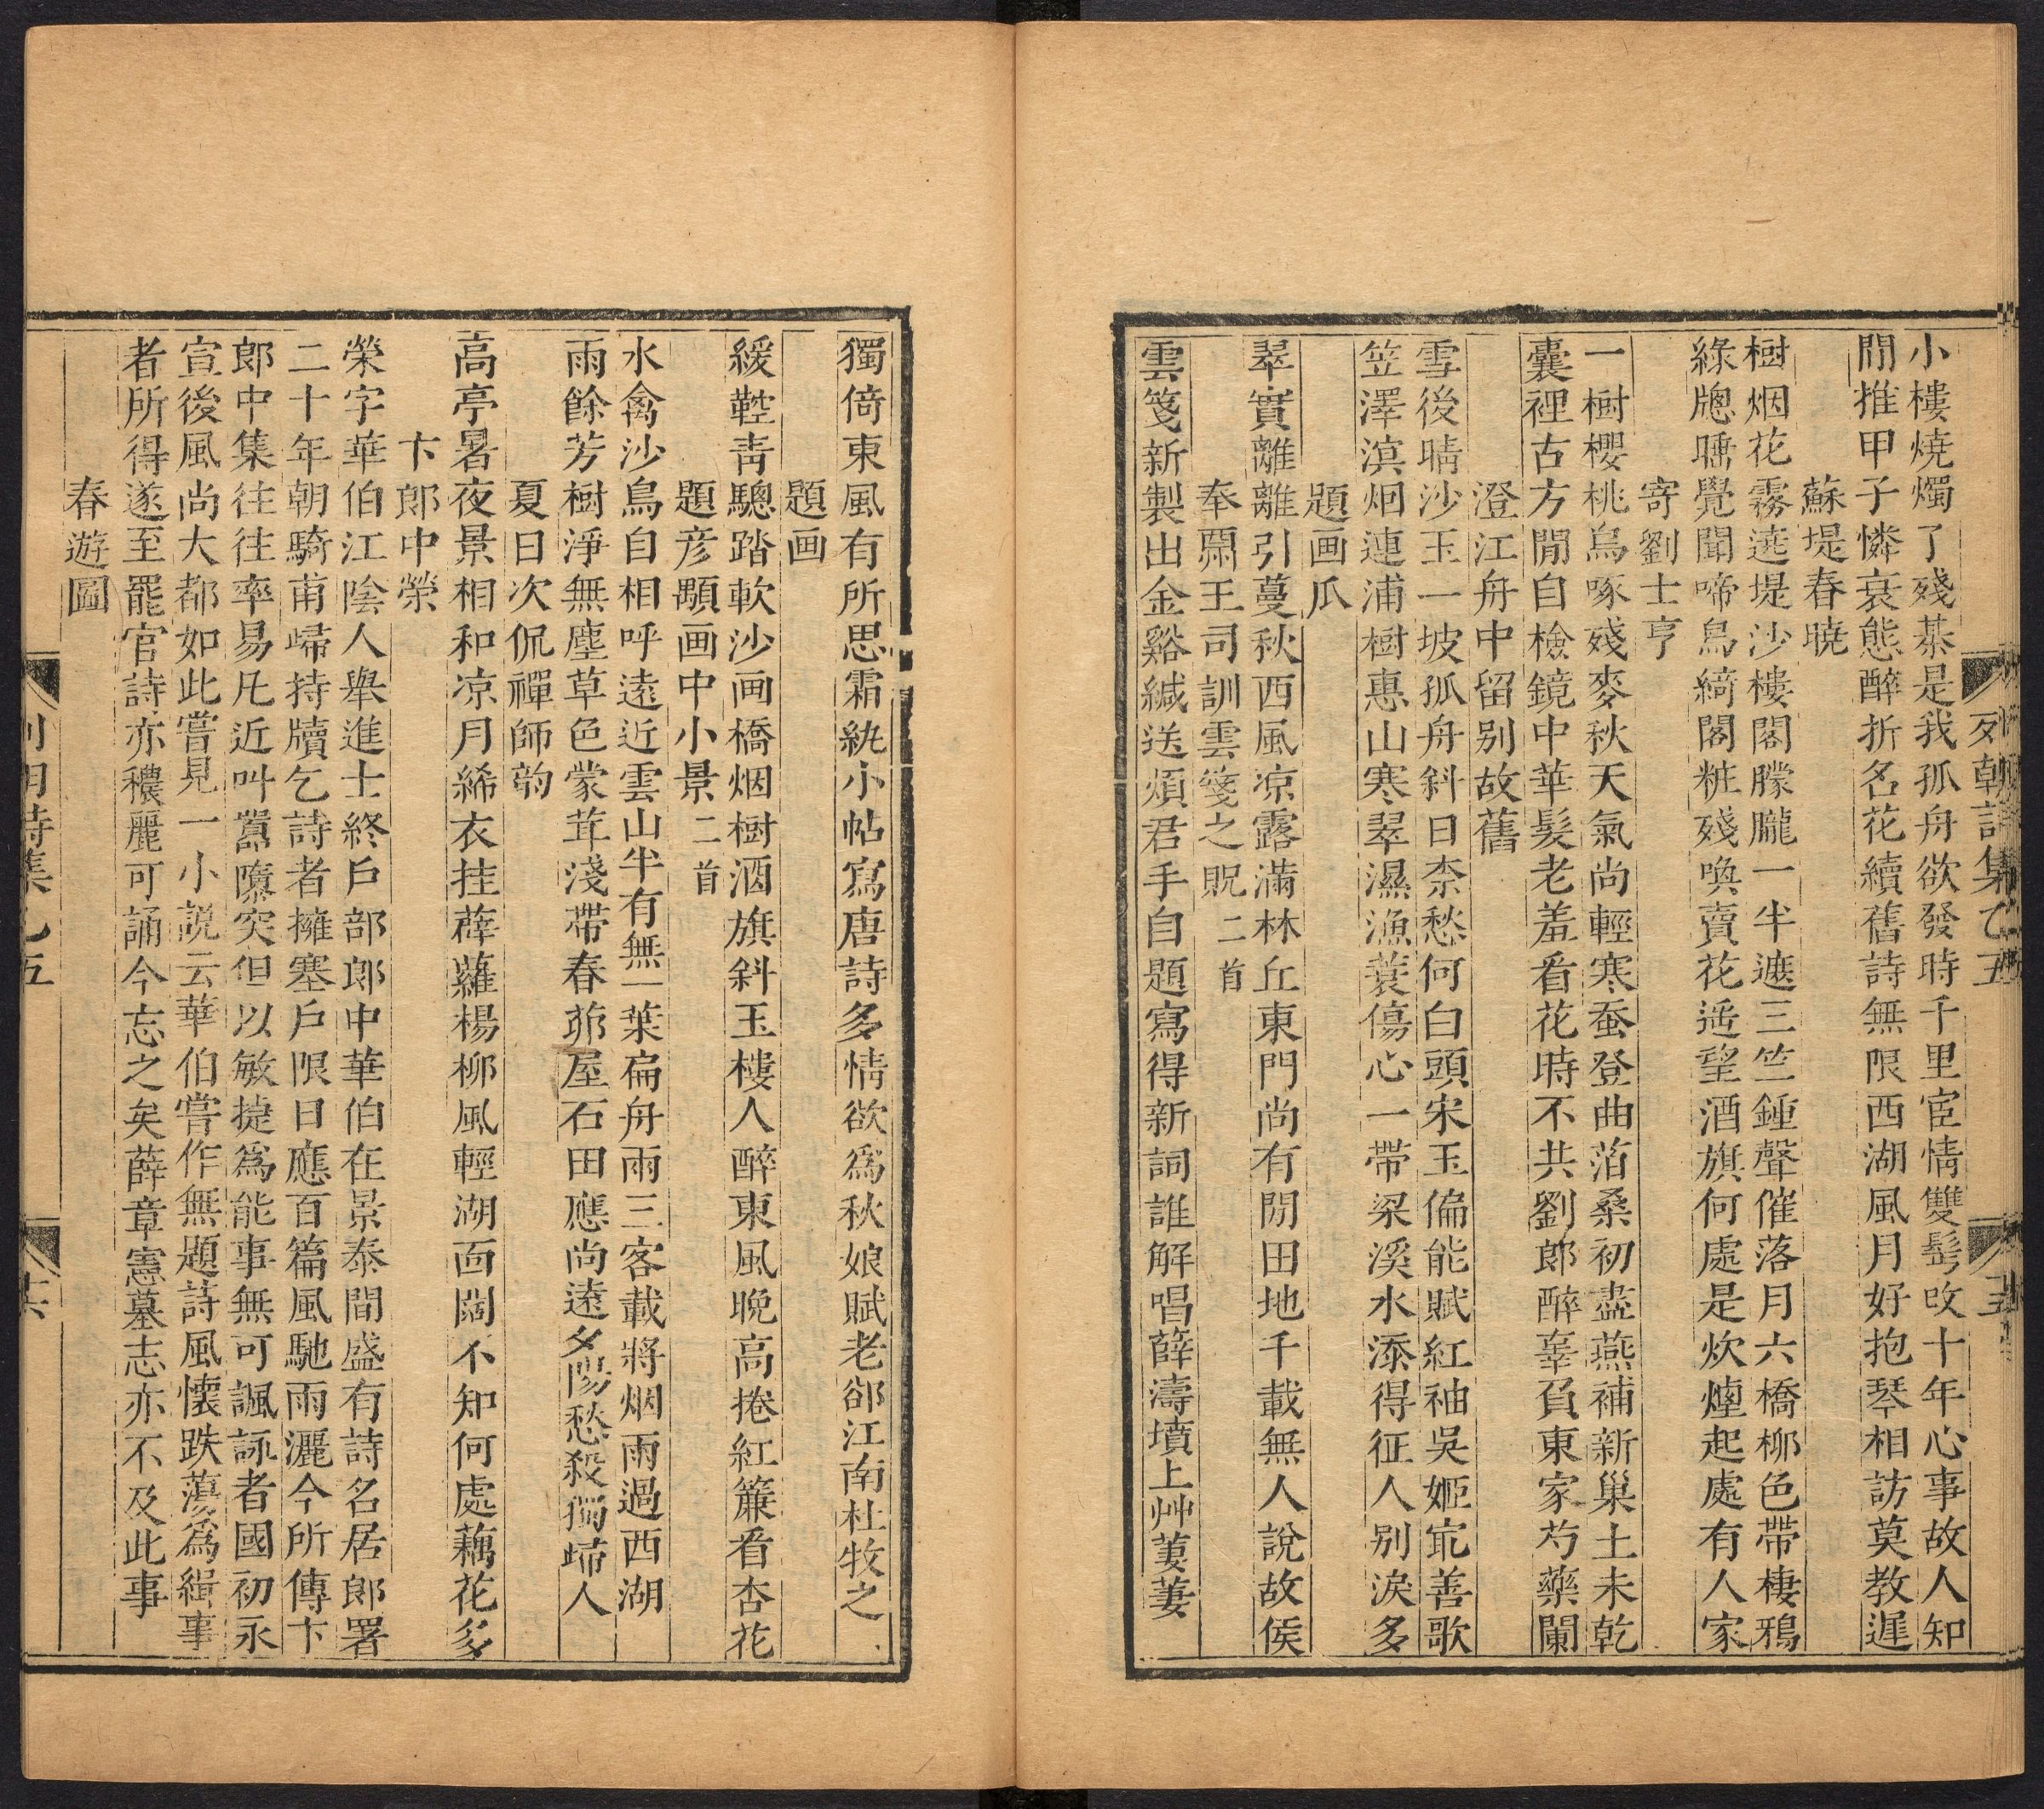 列朝詩集乙五
小樓燒燭了殘棊是我孤舟欲發時千里宦情雙髩改十年心事故人知
閒推甲子憐衰態醉折名花續舊詩無限西湖風月好抱琴相訪莫教遲
蘇堤春曉
樹烟花霧遶堤沙樓閣朦朧一半遮三竺鍾聲催落月六橋柳色帶棲鴉
綠牕睡覺聞啼鳥綺閣粧殘喚賣花遥望酒旗何處是炊煙起處有人家
寄劉士亨
一樹櫻桃鳥啄殘麥秋天氣尚輕寒蚕登曲箔桑初盡燕補新巢土未乾
囊裡古方閒自檢鏡中華髮老羞看花時不共劉郎醉辜負東家芍藥闌
澄江舟中留别故舊
雪後晴沙玉一坡孤舟斜日柰愁何白頭宋玉偏能賦紅袖吳姬㝎善歌
笠澤溟烟連浦樹惠山寒翠濕漁蓑傷心一帶梁溪水添得征人别淚多
題画瓜
翠實離離引蔓秋西風凉露滿林丘東門尚有閒田地千載無人說故侯
奉䣛王司訓雲箋之貺二首
雲箋新製出金谿緘送煩君手自題寫得新詞誰解唱薛濤墳上艸萋萋
獨倚東風有所思霜紈小帖寫唐詩多情欲爲秋娘賦老郤江南杜牧之
題画
緩鞚青驄踏軟沙画橋烟樹酒旗斜玉樓人醉東風晚高捲紅簾看杏花
題彦顒画中小景二首
水禽沙鳥自相呼遠近雲山半有無一葉扁舟兩三客載將烟雨過西湖
雨餘芳樹淨無塵草色蒙茸淺帶春茆屋石田應尚遠夕陽愁殺獨歸人
夏日次侃禪師韵
高亭暑夜景相和凉月絺衣挂薜蘿楊柳風輕湖面闊不知何處藕花多
卞郎中榮
榮字華伯江陰人舉進士終戶部郎中華伯在景泰間盛有詩名居郎署
二十年朝騎甫歸持牘乞詩者擁塞戶限日應百篇風馳雨灑今所傳卞
郎中集往往率易凡近叫囂隳突但以敏捷爲能事無可諷詠者國初永
宣後風尚大都如此嘗見一小說云華伯嘗作無題詩風懷跌蕩爲緝事
者所得遂至罷官詩亦穠麗可誦今忘之矣薛章憲墓志亦不及此事
春遊圖
列朝詩集乙五